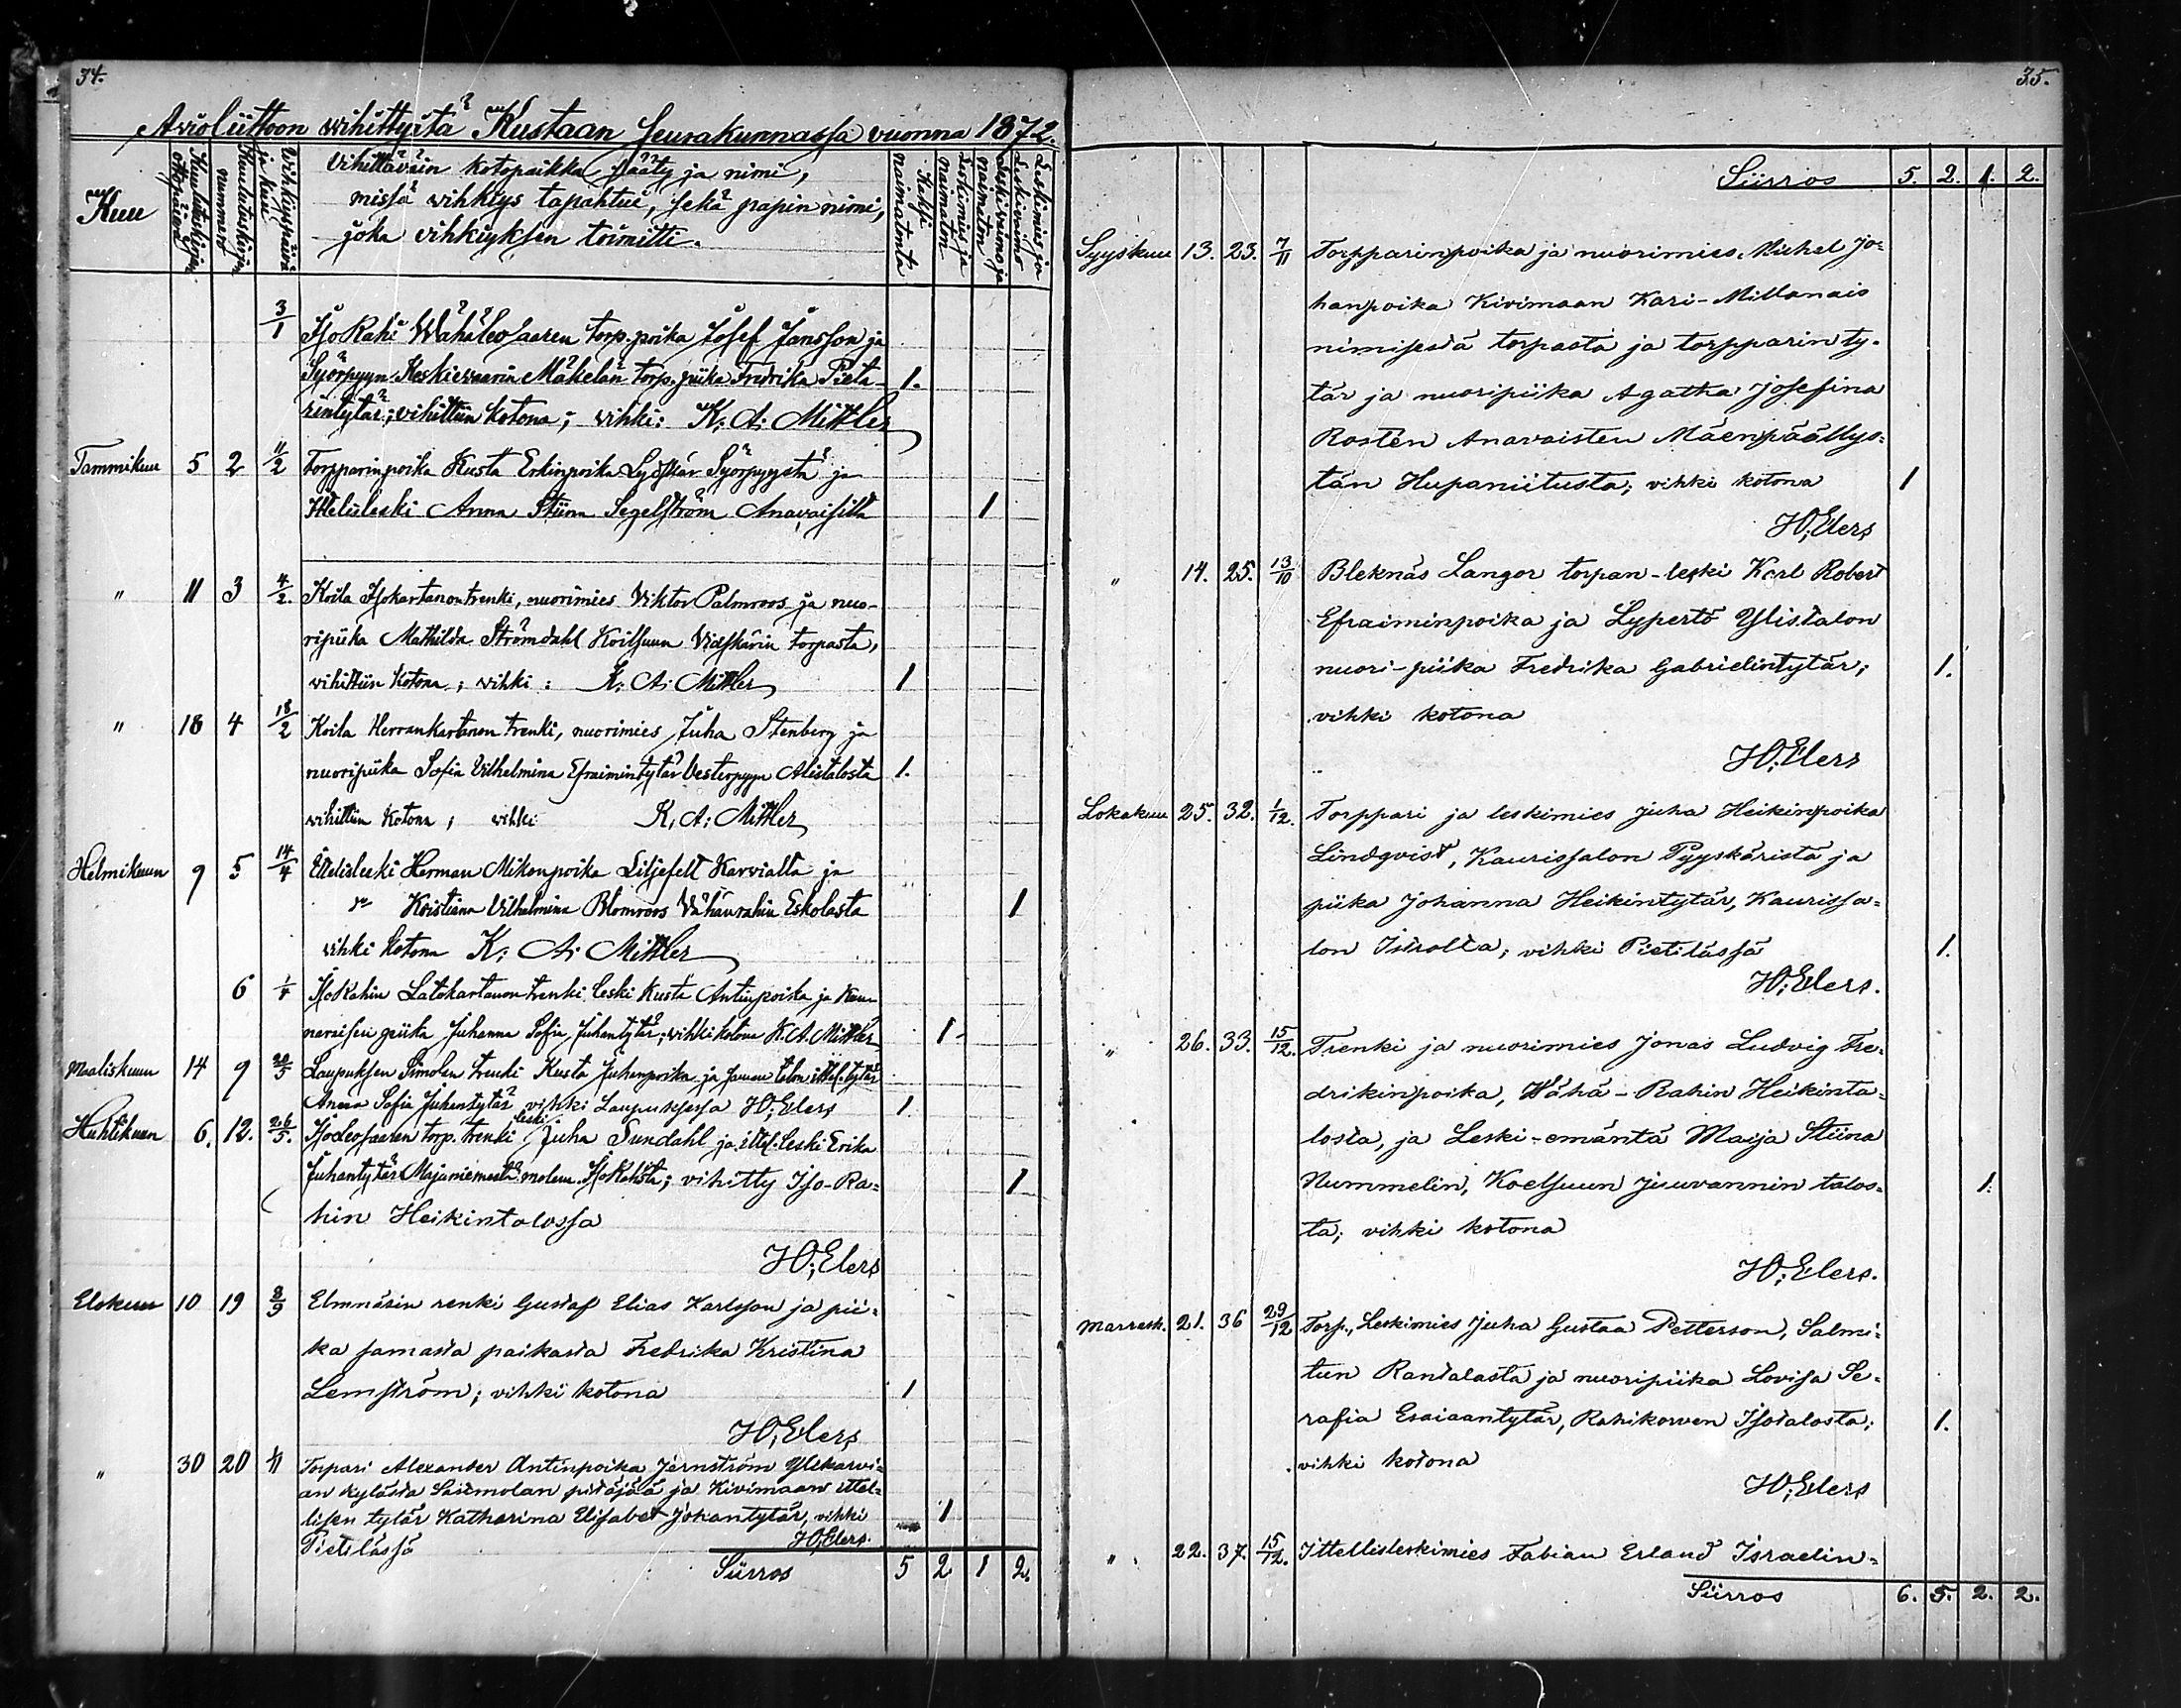 34.
Avioliittoon wihittyitä Kustaan seurakunnassa vuonna 1872.
Kuu
Kuulutuskirjan ottopäivä
Kuulutuskirjan nummero
Vihkiypäivä ja kuu
Vihittäväin kotopaikka, sääty ja nimi,
missä wihkiys tapahtui, sekä papin nimi,
joka vihkiyksen toimitti.
Kaksi naimatonta
Leskimies ja naimaton
Leskivaimo ja naimaton
Leskimies ja Leskivaimo
3/1 IsoRahi Wähäleosaaren torp. poika Josef Jansson ja
Syörpyyn Keskievaarin Mäkelän torp. piika Fredrika Pieta- 1.
rintytär; vihittiin kotona; vihki: K: A: Mittler
Tammikuu 5 2 11/2 Torpparinpoika Kusta Erkinpoika Sydskär Syörpyystä ja
Ittelisleski Anna Stiina Segelström Anavaisilta 1
" 11 3 4/2. Koila Isokartanon trenki, nuorimies Viktor Palmroos ja nuo-
ripiika Mathilda Strömdahl Koilsuun Vidskärin torpasta,
vihittiin kotona; vihki: K: A: Mittler 1
" 18 4 18/2 Koila Herrankartanon trenki, nuorimies Juha Stenberg ja
nuoripiika Sofia Vilhelmina Efraimintytär Vesterpyyn Alistalosta 1.
wihittiin kotona; wihki K: A: Mittler
Helmikuun 9 5 14/4 Ittelisleski Herman Mikonpoika Liljefelt Karvialta ja
Kristiina Vilhelmina Blomroos Vähänrahin Eskolasta 1
vihki kotona K: A: Mittler
6 1/4 IsoRahin Latokartanon trenki leski Kusta Antinpoika ja Kun-
naraisen piika Juhanna Sofia Juhantytär; wihki kotona K. A. Mittler 1
Maaliskuun 14 9 20/5 Laupuksen Simolan trenki Kusta Juhanpoika ja saman talon ittel. tytär
Anna Sofia Juhantytär vihki Laupuksessa H; Elers 1
Huhtikuun 6. 12. 26/5. Isoleosaaren torp. trenki leski Juha Sundahl ja ittel. leski Erika
Juhantytär Majaniemestä molem. IsoRahista; vihitty Iso-Ra= 1
hin Heikintalossa
H; Elers
Elokuu 10 19 8/9 Elmnäsin renki Gustaf Elias Karlsson ja pii=
ka samasta paikasta Fredrika Kristina
Lemström; vihki kotona 1
H; Elers
" 30 20 1/11 Torpari Alexander Antinpoika Jernström Ylikarvi=
an kylästä Taivmolan pitäjää ja Kivimaan ittel=
lisen tytär Katharina Elisabet Johantytär, vihki 1
Pietilässä H; Elers.
Siirros 5 2 1 2.
35.
Siirros 5. 2. 1. 2.
Syyskuu 13. 23. 7/11 Torpparinpoika ja nuorimies Mikel Jo=
hanpoika Kivimaan Kari-Millanais
nimisestä torpasta ja torpparin ty-
tär ja nuoripiika Agatha Josefina
Rostén Anavaisten Mäenpäällys=
tän Hupaniitusta; vihki kotona 1
H; Elers
" 14. 25. 13/10 Bleknäs Langor torpan-leski Karl Robert
Efraiminpoika ja Lypertö Ylistalon
nuori-piika Fredrika Gabrielintytär; 1.
vihki kotona
H; Elers
Lokakuu 25. 32. 1/12. Torppari ja leskimies Juha Heikinpoika
Lindqvist, Kaurissalon Pyyskäristä ja
piika Johanna Heikintytär, Kaurissa=
lon Isirolta; vihki Pietilässä 1.
H; Elers.
" 26. 33. 15/12. Trenki ja nuorimies Jonas Ludvig Fre=
drikinpoika, Wähä-Rahin Heikinta=
losta, ja Leski-emäntä Maija Stiina
Nummelin, Koelsuun Jisuvannin talos= 1.
ta; vihki kotona
H; Elers.
Marrask. 21. 36 29/12 Torp., Leskimies Juha Gustaa Petterson, Salmi=
tun Rantalasta ja nuoripiika Lovisa Se=
rafia Esaiaantytär, Rahikorven Isotalosta; 1.
vihki kotona
H; Elers
" 22. 37. 15/12. Ittellisleskimies Fabian Erland Israelin=
Siirros 6. 5. 2. 2.